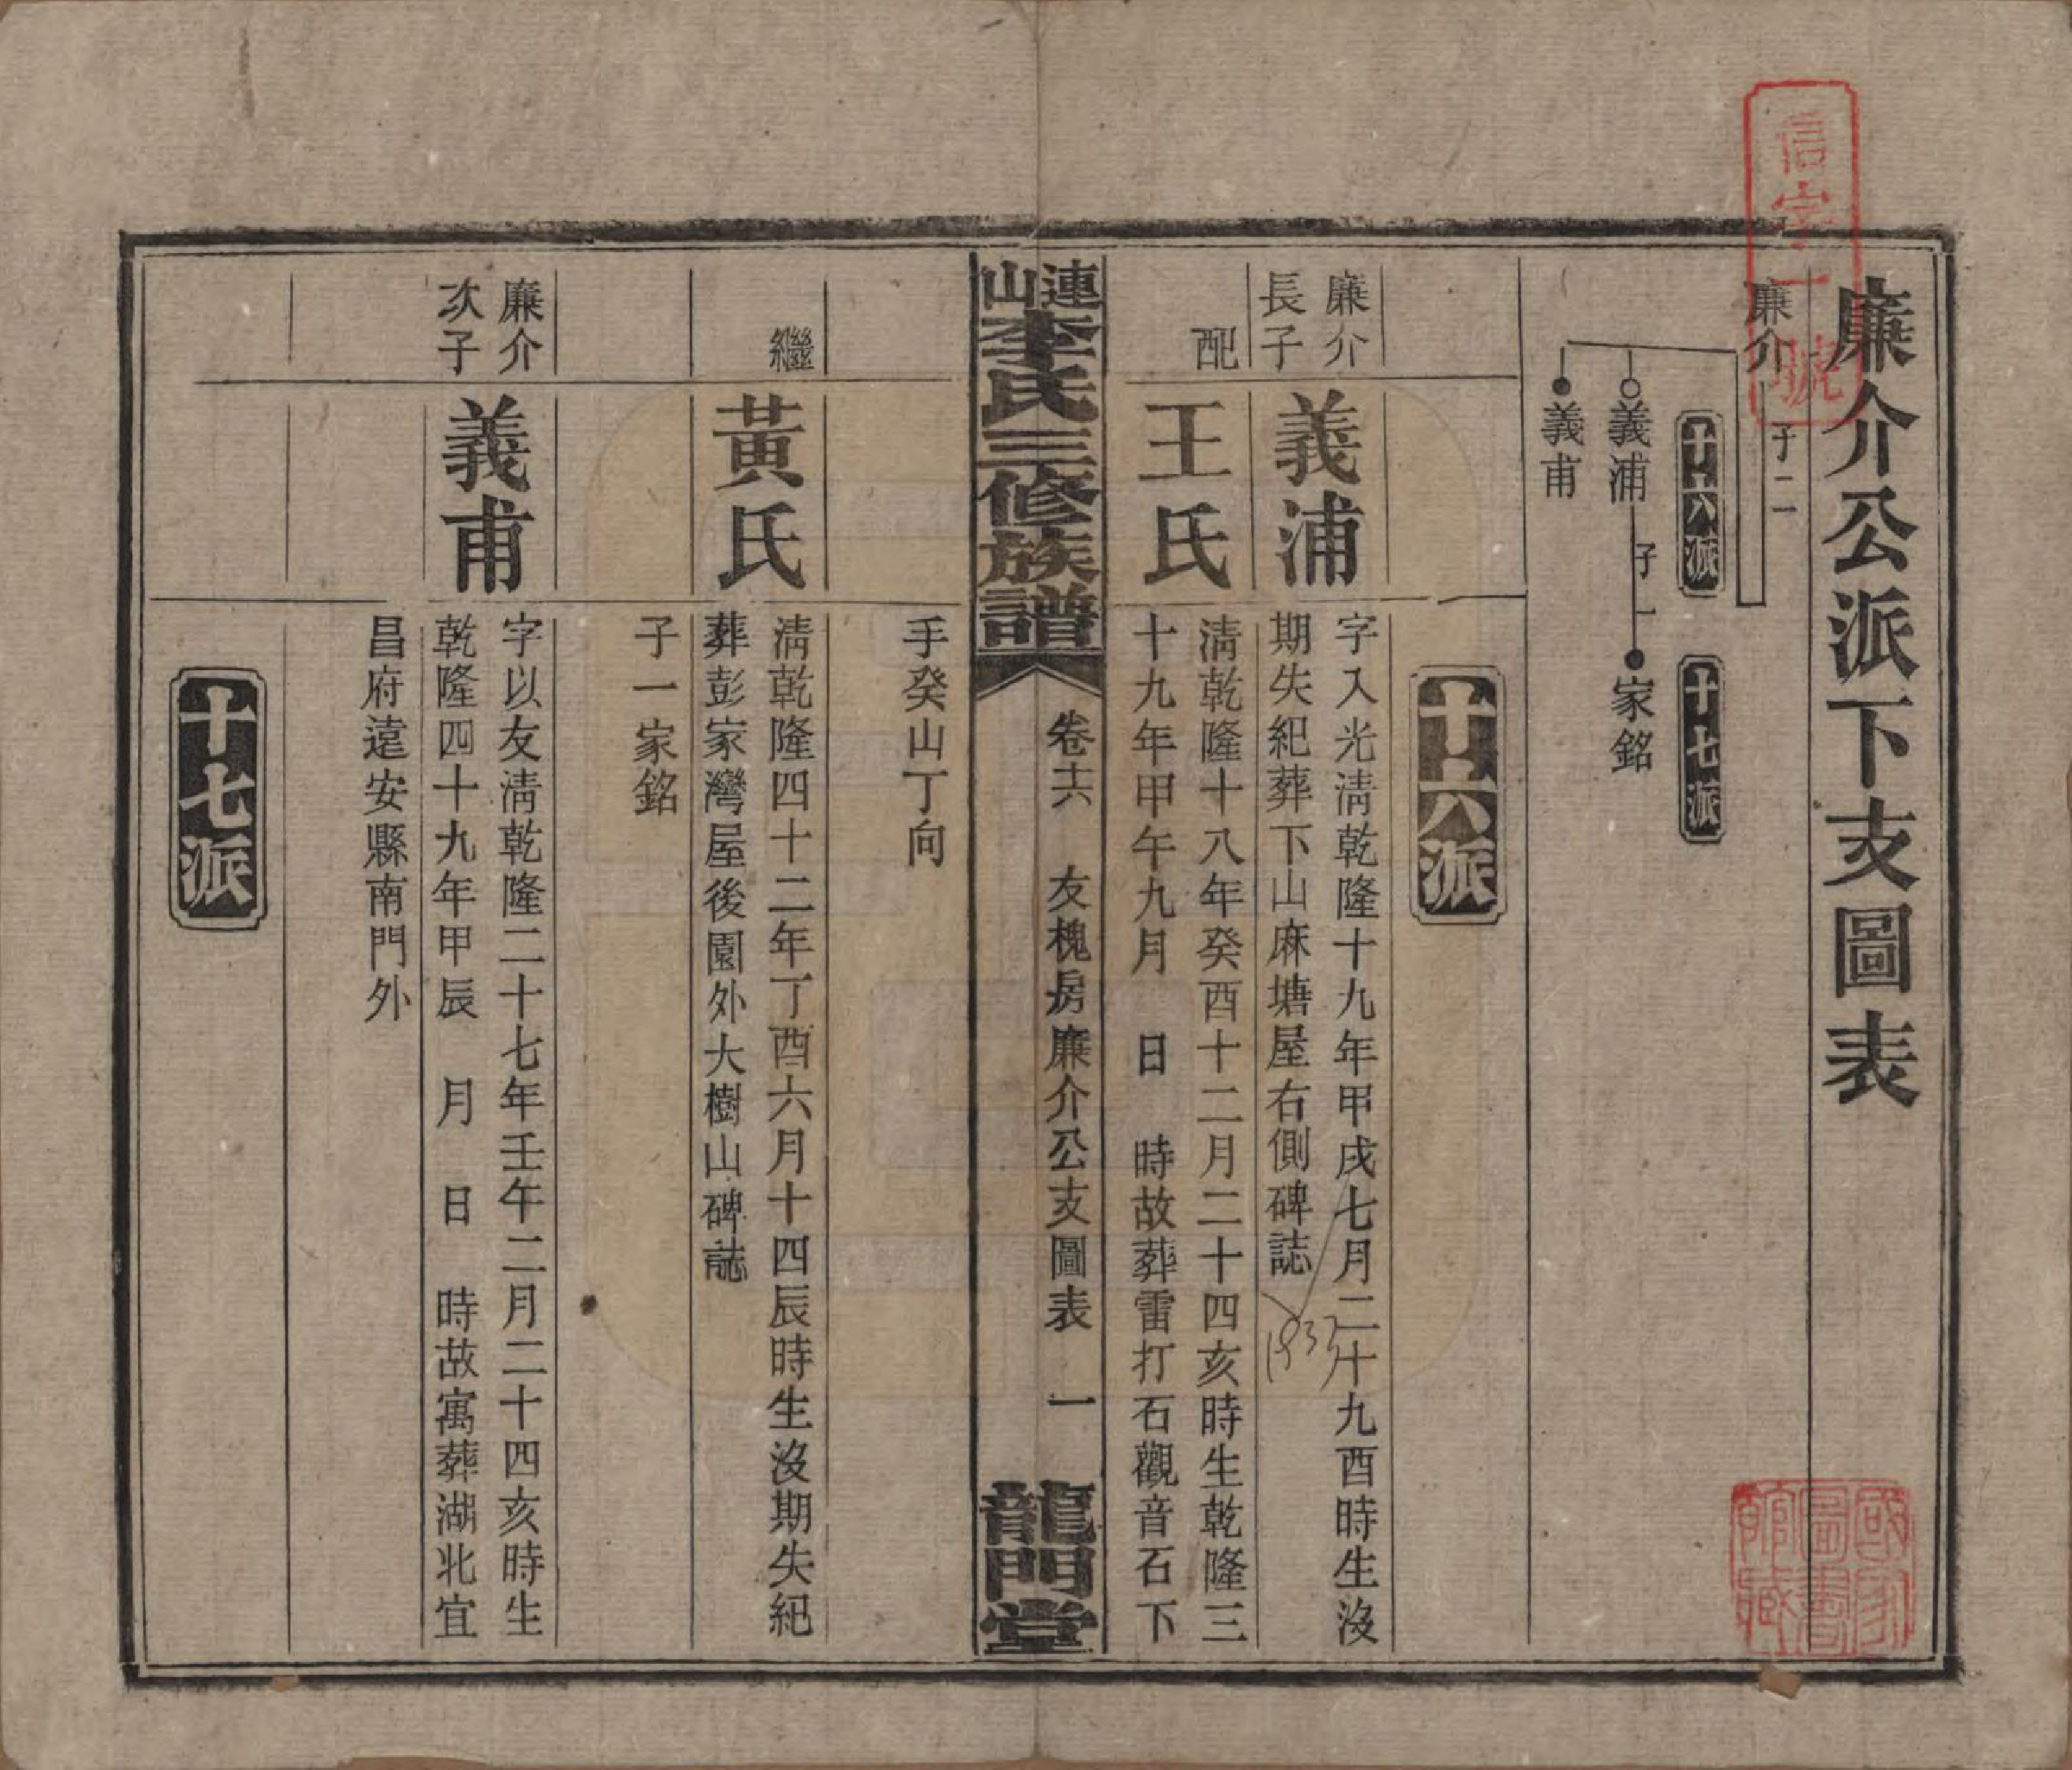 廉介公派下支圖表
信字一號
廉介
子二
十六派
十七派
義浦
子一
家銘
義甫
十六派
廉介
長子
義浦
字入光淸乾隆十九年甲戌七月二十九酉時生沒
期失紀葬下山麻塘屋右側碑誌
1933
配
王氏
淸乾隆十八年癸酉十二月二十四亥時生乾隆三
十九年甲午九月 日 時故葬雷打石觀音石下
連山李氏三修族譜
卷十六 友槐房廉介公支圖表 一
龍門堂
手癸山丁向
繼
黃氏
淸乾隆四十二年丁酉六月十四辰時生沒期失紀
葬彭家灣屋後園外大樹山碑誌
子一家銘
廉介
次子
義甫
字以友淸乾隆二十七年壬午二月二十四亥時生
乾隆四十九年甲辰 月 日 時故寓葬湖北宜
昌府遠安縣南門外
十七派
國家
圖書
館藏